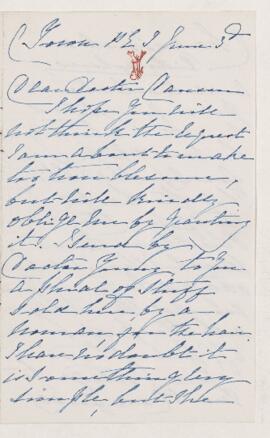 Town P E I June 3d
Dear Doctor Dawson
I hope you will
not think the request
I am about to make
too troublesome,
but will kindly
oblige me by granting
it. I send by
Doctor Young to you
a phial of stuff
sold here, by a
woman, for the hair.
I have no doubt it
is something very
simple, but she